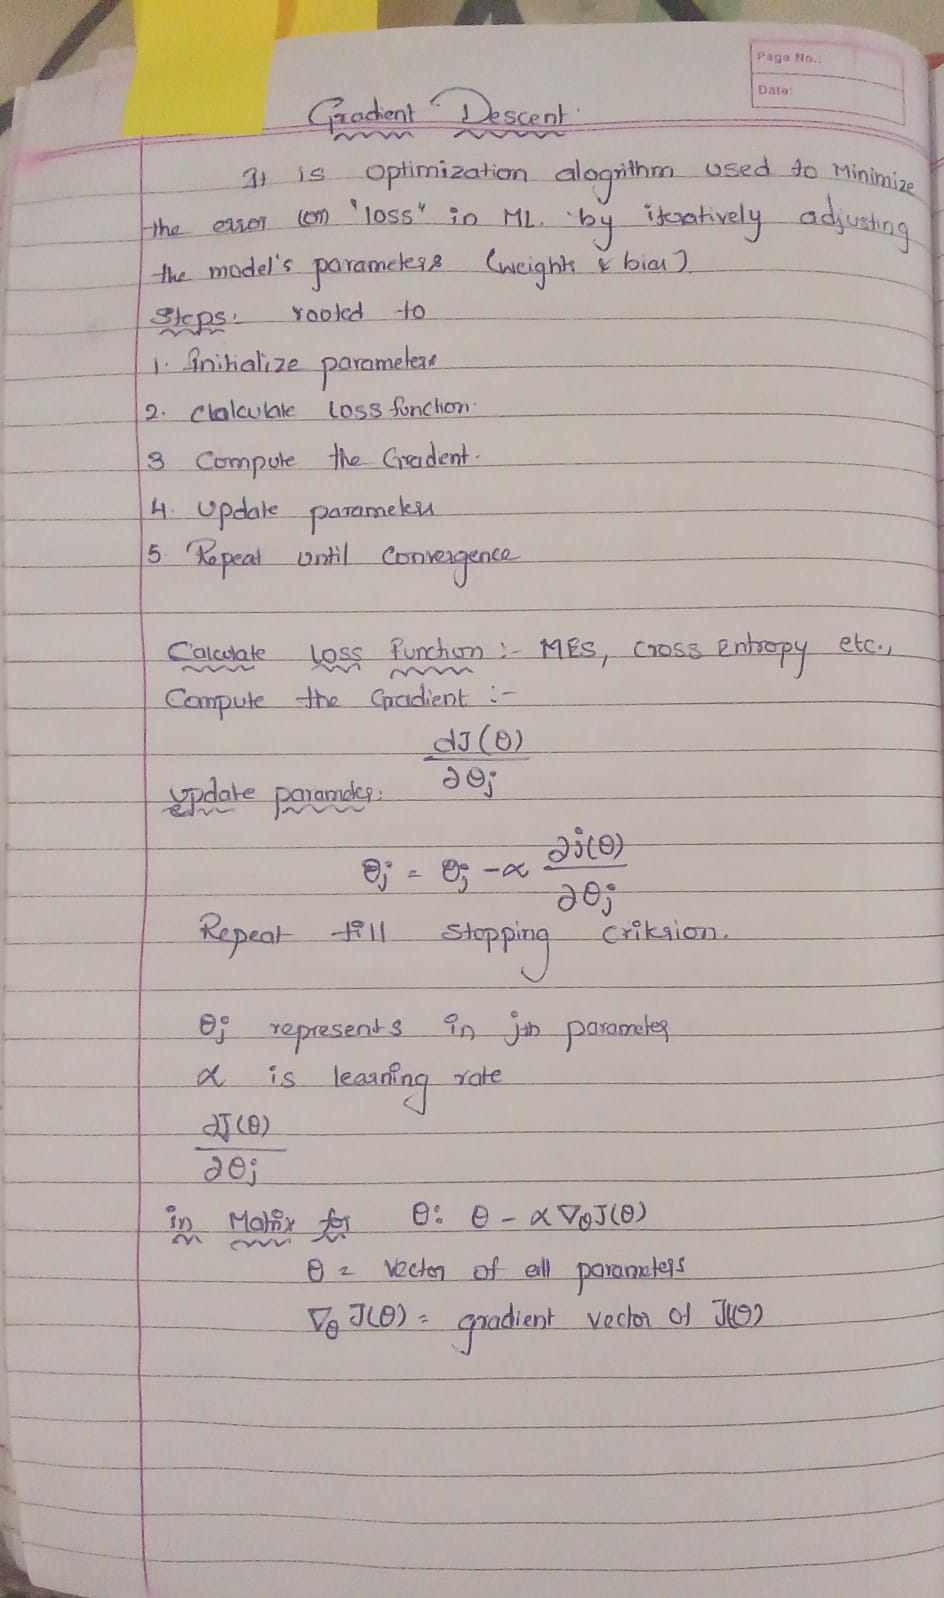 Page No.:
Date:
Gradient Descent.
It is Optimization alogrithm used to Minimize
the error (on "loss" in ML. by iteratively adjusting
the model's parameters (weights & bias)
Steps: rooted to
1. Initialize parameters
2. Clalculate Loss function.
3 Compute the Gradent.
4. Update parameters
5. Repeat until Convergence
Calculate Loss Function :- MES, Cross Entropy etc.,
Compute the Gradient :-
dJ(θ)
∂θj
Update parameter:
θj = θj - α ∂j(θ)
∂θj
Repeat till Stopping Criterion.
θj represents in jth parameter
α is learning rate
∂J(θ)
∂θj
in Matrix for θ: θ - α ∇θJ(θ)
θ = Vector of all parameters
∇θ J(θ) = gradient vector of J(θ)